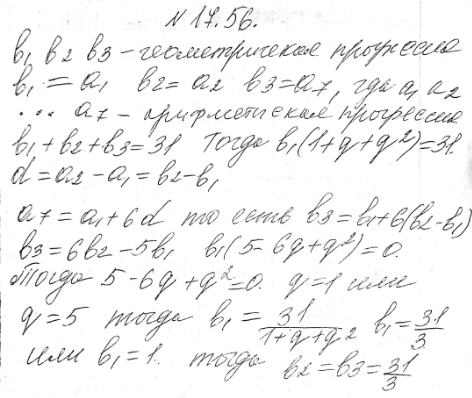 №17.56.
b₁ b₂ b₃ – геометрическая прогрессия
b₁ = a₁ b₂ = a₂ b₃ = a₇, где a₁ a₂
... a₇ – арифметическая прогрессия
b₁ + b₂ + b₃ = 31 Тогда b₁(1+q+q²) = 31.
d = a₂ – a₁ = b₂ – b₁
a₇ = a₁ + 6d то есть b₃ = b₁ + 6(b₂ – b₁)
b₃ = 6b₂ – 5b₁ b₁(5 – 6q + q²) = 0.
Тогда 5 – 6q + q² = 0. q = 1 или
q = 5 тогда b₁ = 31/(1+q+q²) b₁ = 31/3
или b₁ = 1. тогда b₂ = b₃ = 31/3